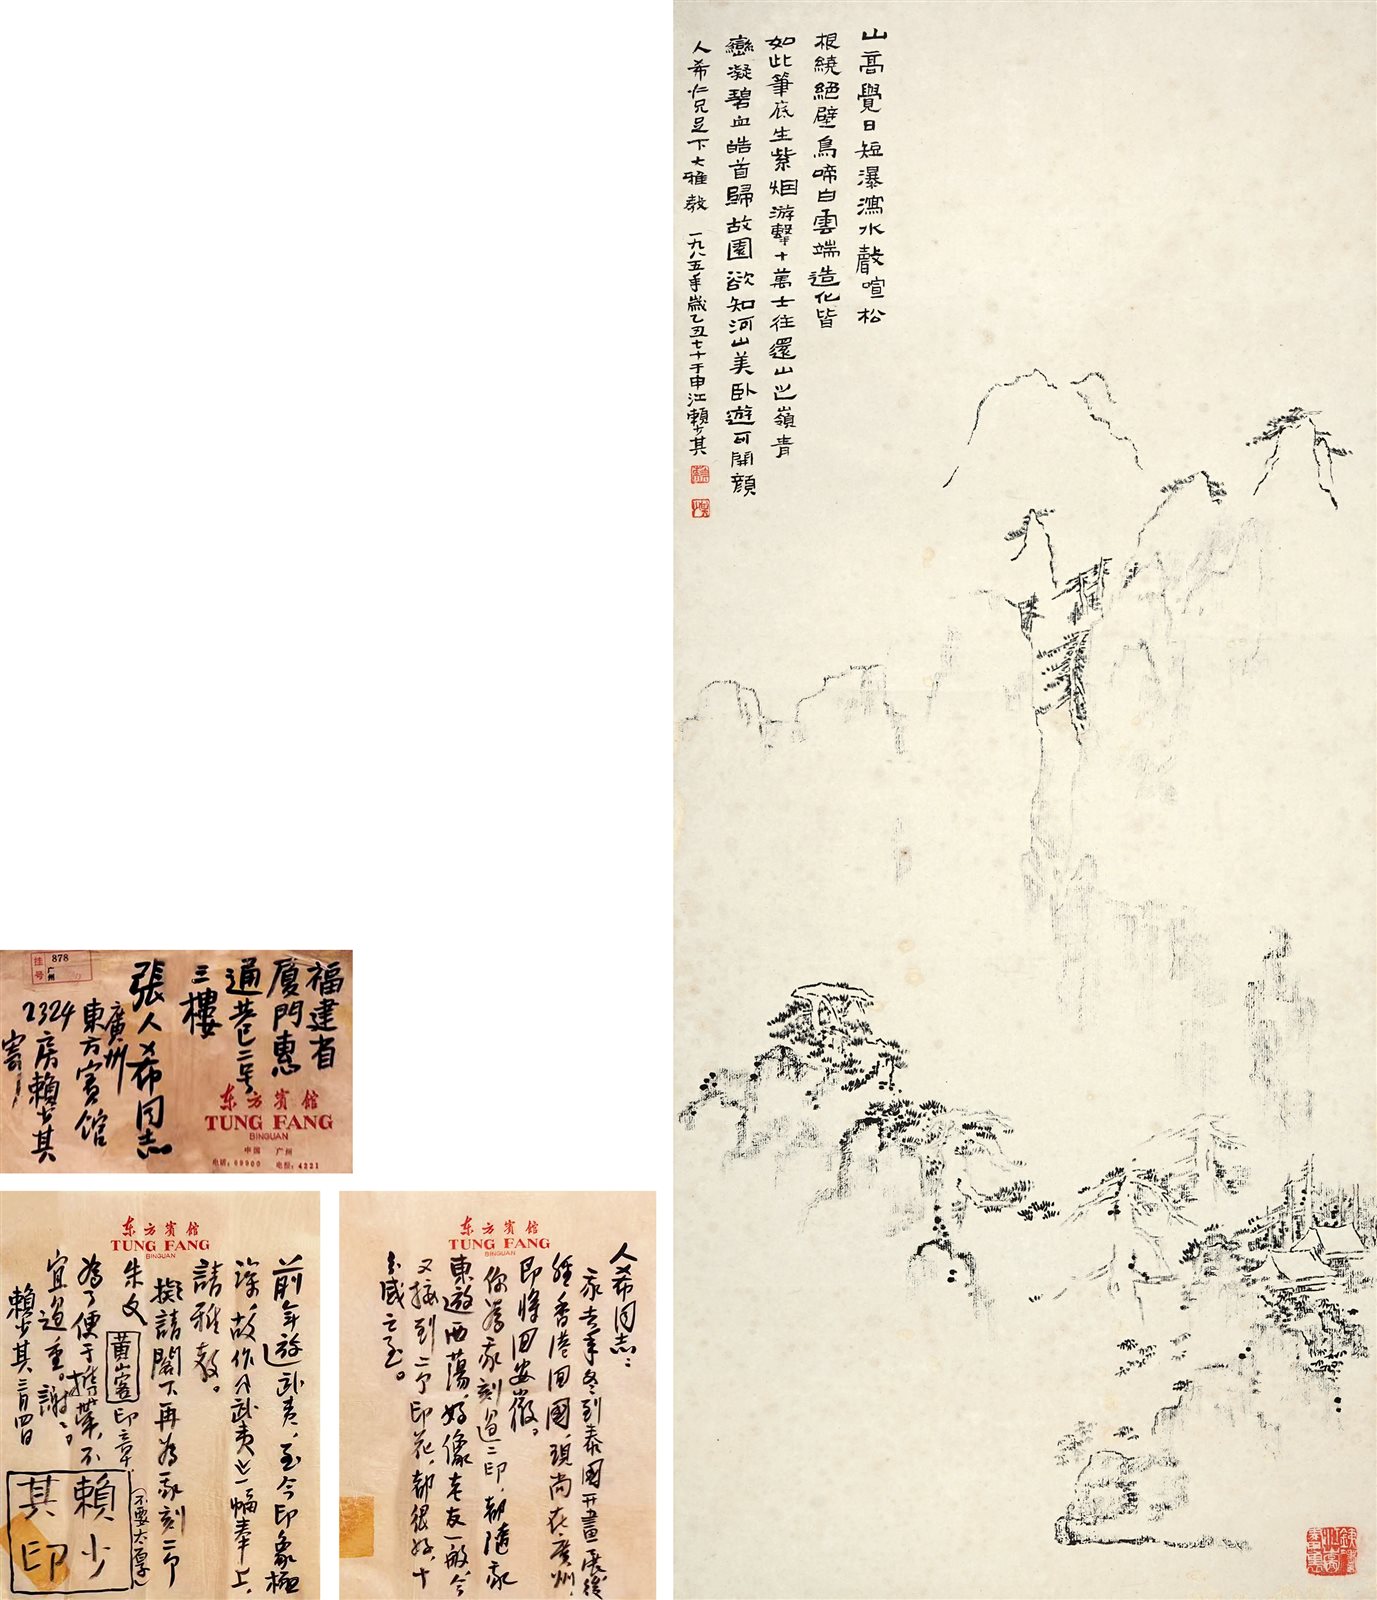 山高覺日短瀑瀉水聲喧松
根繞絕壁鳥啼白雲端造化皆
如此筆底生紫烟游擊十萬士往還山之嶺青
巒凝碧血皓首歸故園欲知河山美卧遊可開顏
人希仁兄足下大雅教 一九八五年歲乙丑七十于申江賴少其
挂号
878
广州
福建省
厦門惠
通巷已二号
三樓
張人希同志
廣州
東方賓馆
2324房賴少其
寄
东方賓馆
TUNG FANG
BINGUAN
中国 广州
电话:69900 电报:4221
东方賓馆
TUNG FANG
BINGUAN
人希同志:
我去年冬到泰國开畫展後
經香港回國,現尚在广州,
即将回安徽。
你為我刻过二印,都隨我
東遊西蕩,好像老友一般,今
又接到二方印花,都很好,十
分感之至。
东方賓馆
TUNG FANG
BINGUAN
前年遊武夷,至今印象極
深,故作《武夷之一幅奉上,
請雅教。
擬請閣下再為我刻二方
朱文 黄山客 印章,(不要太厚)
為了便于携带,不
宜过重。謝謝。
賴少其 三月四日
賴少
其印